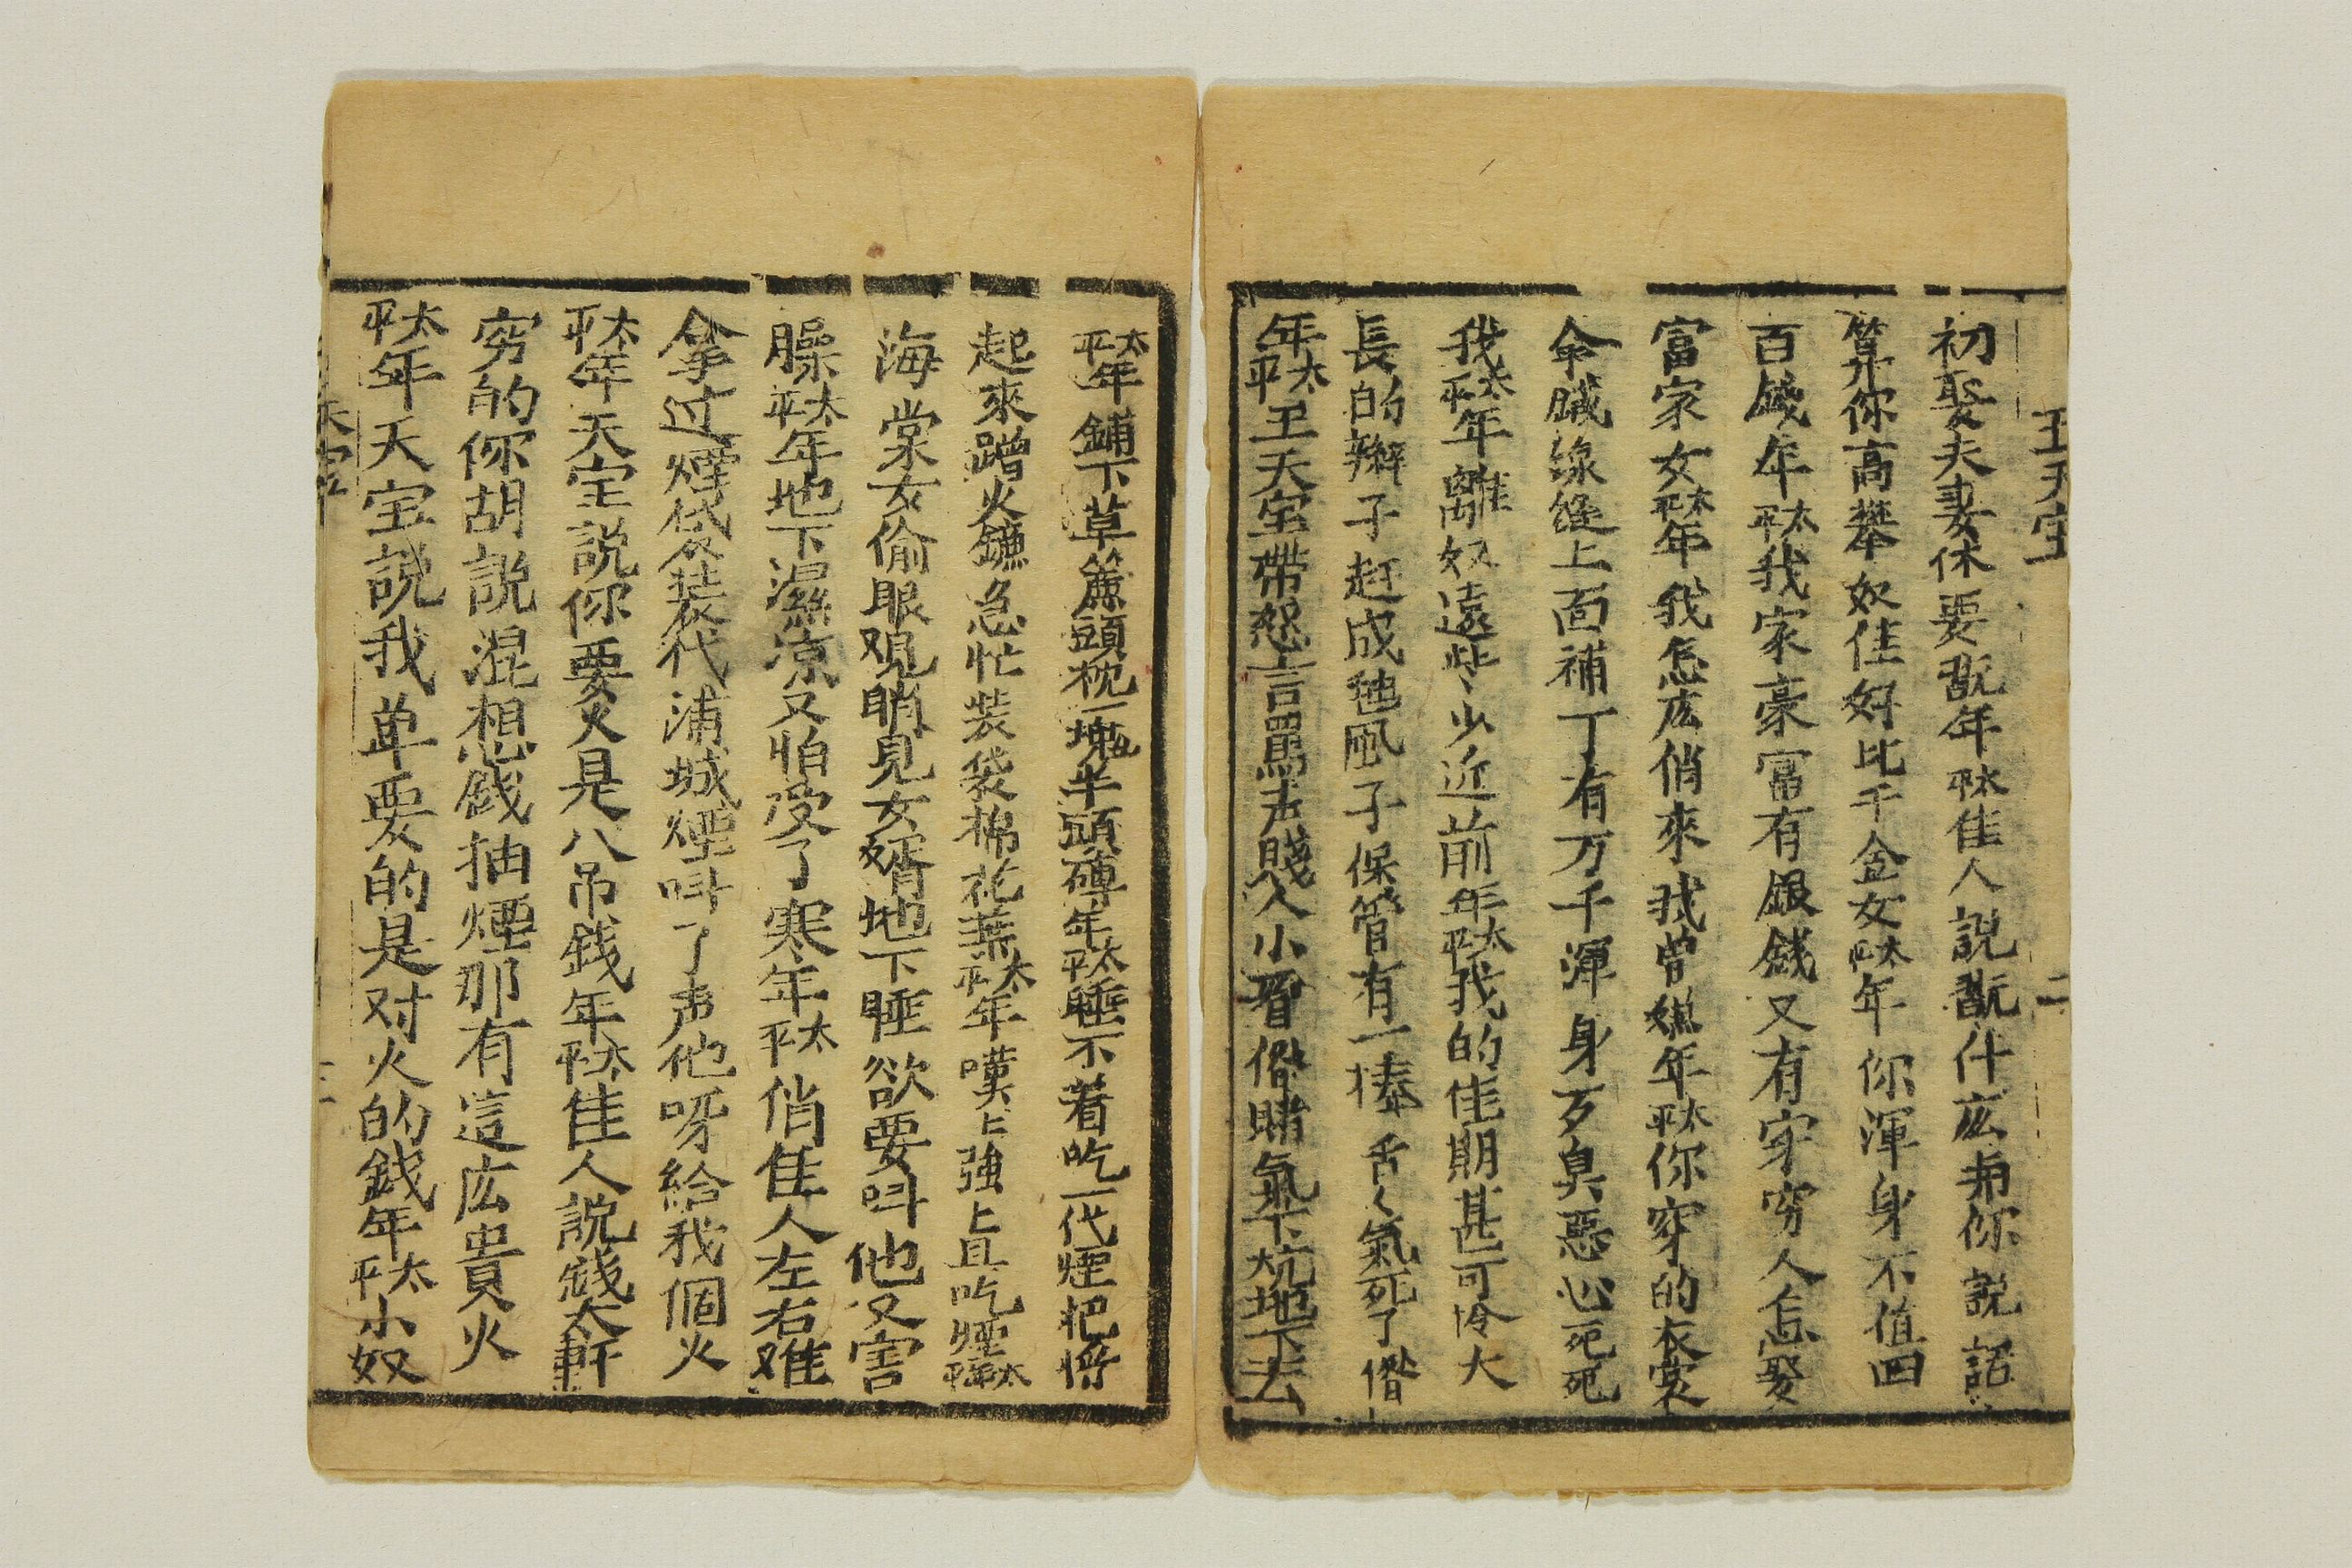 王天宝
二
初娶夫妻休要翫年太平佳人說翫什庅弗你說話
算你高攀奴佳好比千金女太平年你渾身不值四
百錢年太平我家豪富有銀錢又有穿穷人怎娶
富家女太平年我怎庅俏來我曾嫌年太平你穿的衣裳
令線縫上面補丁有万千渾身歹臭惡心死死
我太平年離奴遠些々少近前年太平我的佳期甚可怜大
長的辮子赶成他風子保管有一棒舌く氣死了偺
年太平王天宝帶怨言罵声賤人小看偺賭氣下炕地下去
太平年鋪下草簾頭枕一塊半頭磚年太平睡不着吃一代煙把將
起來蹭火鐮急忙裝袋棉花葉太平年嘆上強上且吃煙太平年
海棠女偷眼观睄見女婿地下睡欲要呌他又害
臊太平年地下濕凉又怕受了寒年太平俏佳人左右难
拿过煙袋裝代浦城煙呌了声他呀給我個火
太平年天宝說你要火是八吊錢年太平佳人說錢太軒
穷的你胡說混想錢抽煙那有這庅貴火
太平年天宝說我单要的是对火的錢年太平小奴
天宝
三